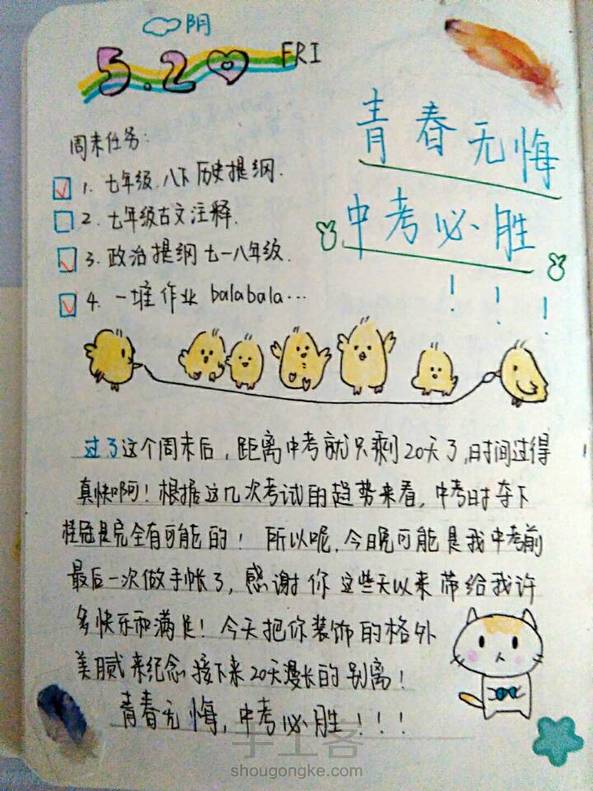 阴
5.20 FRI
青春无悔
中考必胜
！！！
周末任务:
1. 七年级,八下历史提纲.
2. 七年级古文注释.
3. 政治提纲七一八年级.
4. 一堆作业 balabala...
过了这个周末后，距离中考就只剩20天了,时间过得
真快啊！根据这几次考试的趋势来看,中考时夺下
桂冠是完全有可能的！所以呢,今晚可能是我中考前
最后一次做手帐了,感谢你这些天以来带给我许
多快乐和满足！今天把你装饰的格外
美腻来纪念接下来20天漫长的别离！
青春无悔,中考必胜！！！
手工客
shougongke.com